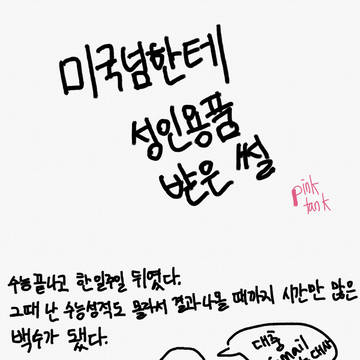 미국넘한테
성인용품
받은 썰
pink
tank
수능 끝나고 한 일주일 뒤였다.
그때 난 수능성적도 몰라서 결과 나올 때까지 시간만 많은
백수가 됐다.
대충